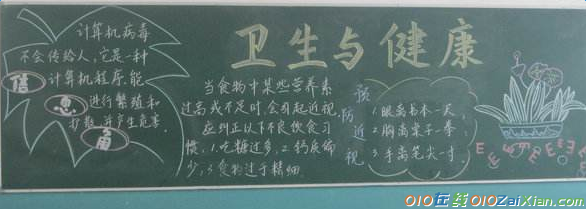 卫生与健康
计算机病毒
不会传给人,它是一种
计算机程序,能
进行繁殖和
扩散,并产生危害
信息角
当食物中某些营养素
过高或不足时,会引起近视,
应纠正以下不良饮食习
惯,1.吃糖过多;2.钙质偏
少;3.食物过于精细
预防近视
1.眼离书本一尺,
2.胸离桌子一拳,
3.手离笔尖一寸,
010在线010ZaiXian.com